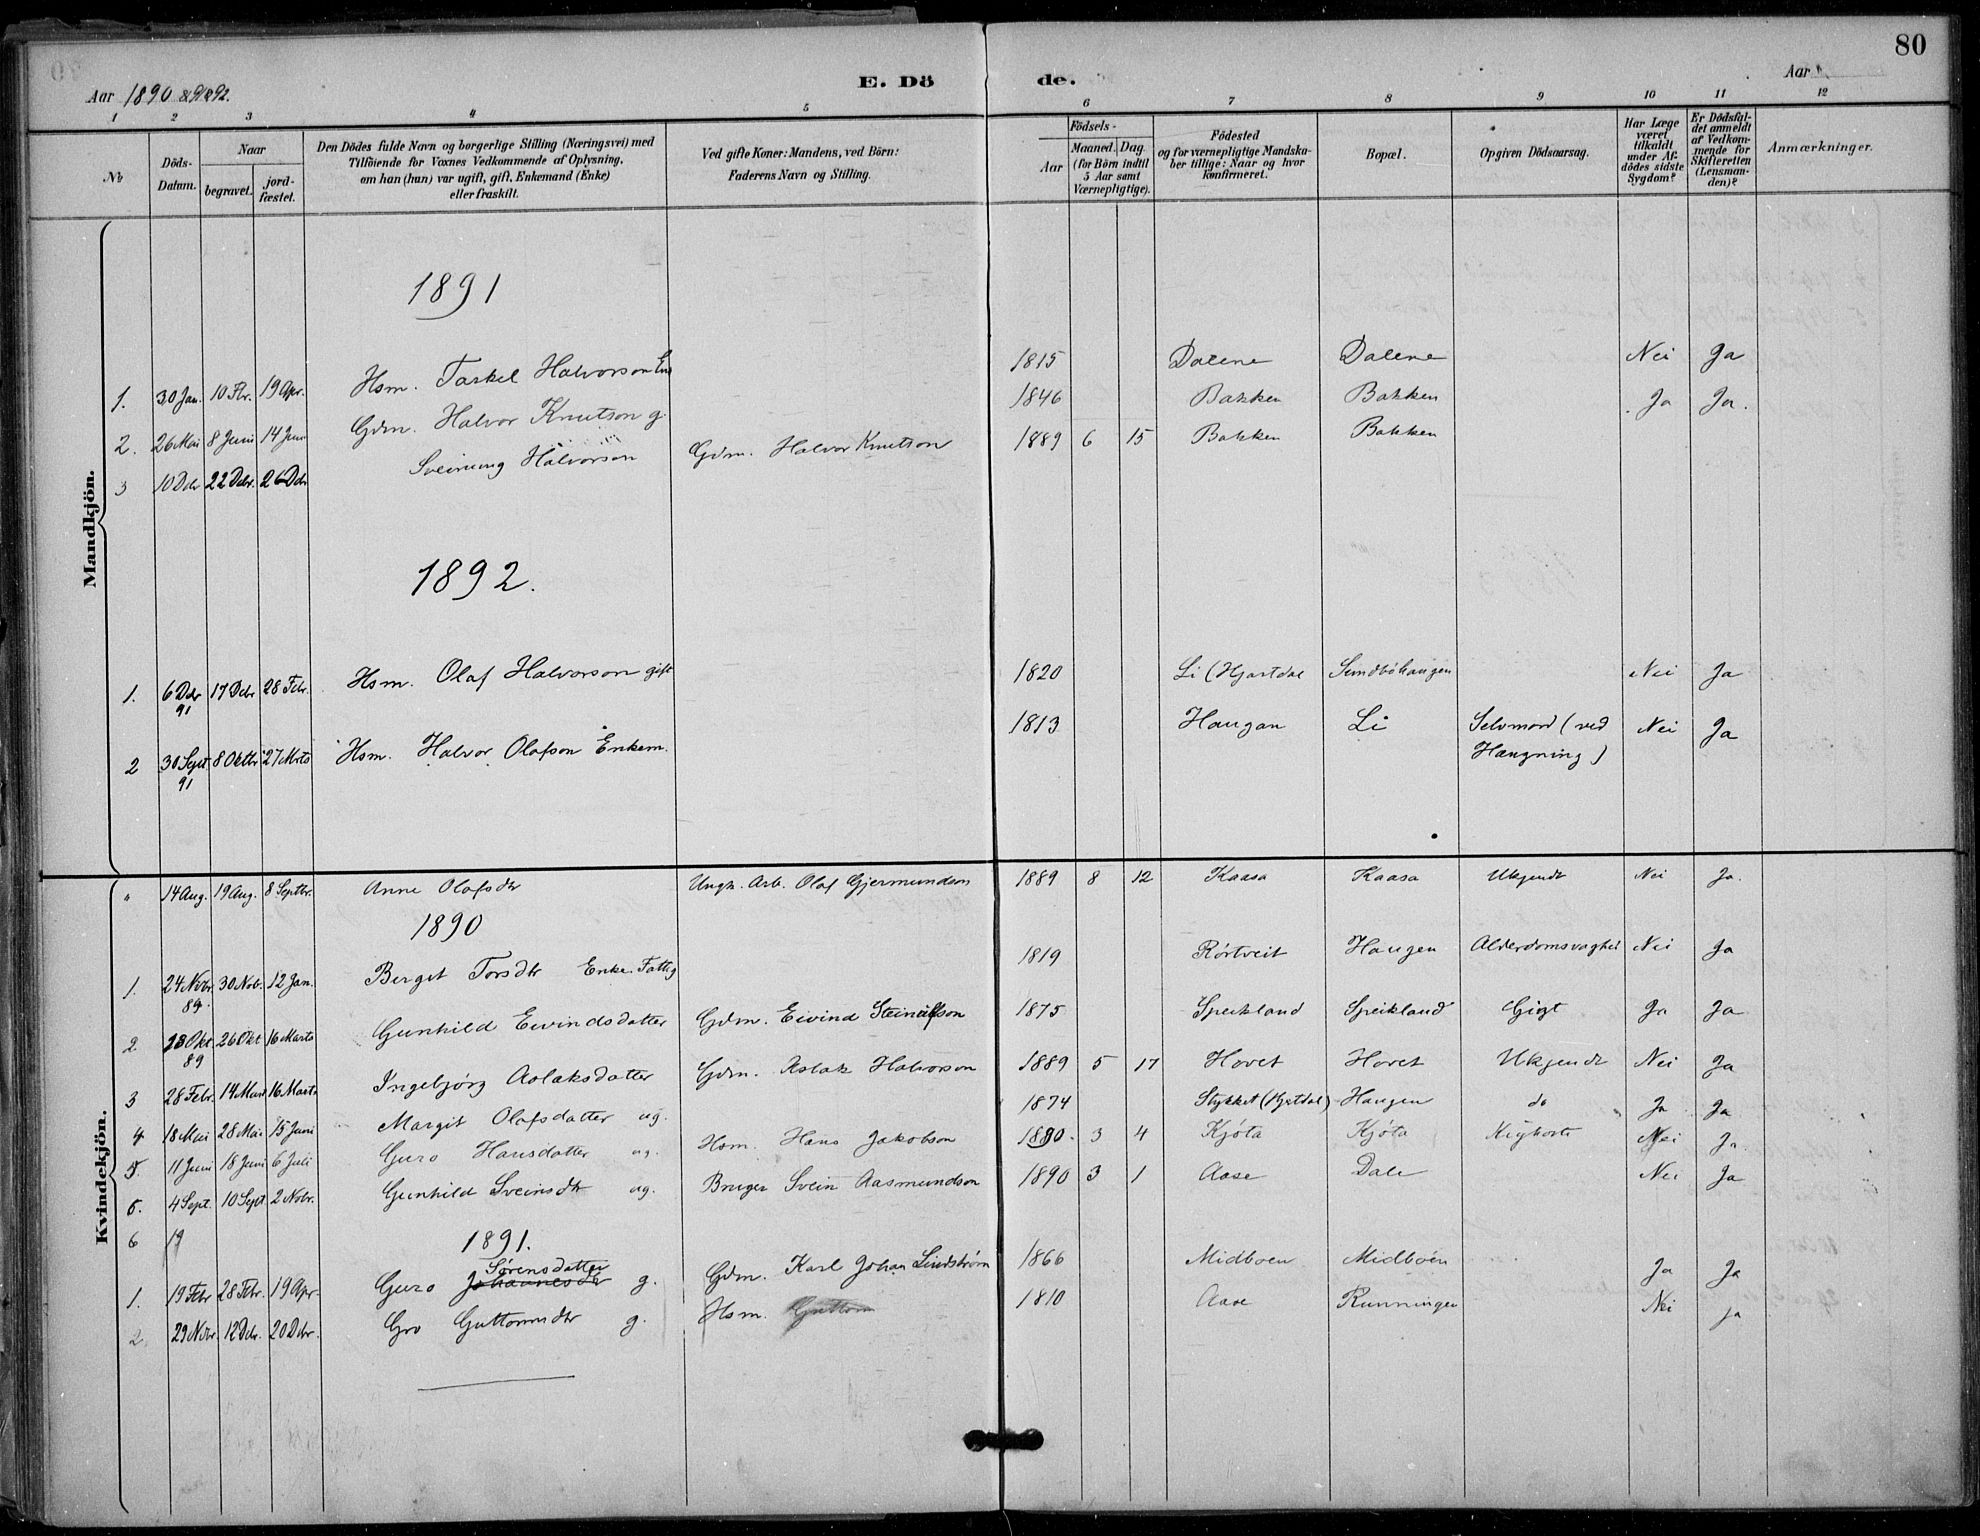 80
Aar 1890 & 91 & 92.
E. Dö
de.
Aar
1 2 3 4 5 6 7 8 9 10 11 12
No
Döds-Datum.
Naar
begravet.
jord-fæstet.
Den Dödes fulde Navn og borgerlige Stilling (Næringsvei) med
Tilföiende for Voxnes Vedkommende af Oplysning,
om han (hun) var ugift, gift, Enkemand (Enke)
eller fraskilt.
Ved gifte Koner: Mandens, ved Börn:
Faderens Navn og Stilling.
Födsels-
Aar
Maaned. Dag.
(for Börn indtil
5 Aar samt
Værnepligtige).
Födested
og for værnepligtige Mandska-
ber tillige: Naar og hvor
konfirmeret.
Bopæl.
Opgiven Dödsaarsag.
Har Læge
været
tilkaldt
under Af-
dödes sidste
Sygdom?
Er Dödsfal-
det anmeldt
af Vedkom-
mende for
Skifteretten
(Lensman-
den)?
Anmærkninger.
Mandkjön.
1891
1. 30 Jan. 10 Fbr. 19 Apr. Hsm. Taskel Halvorson Enk 1815 Dalene Dalene Nei Ja
2. 26 Mai 8 Juni 14 Juni Gdm. Halvor Knutson g. 1846 Bakken Bakken Ja Ja.
3 10 Dcbr 22 Dcbr. 26 Dcbr Sveinung Halvorson Gdm. Halvor Knutson 1889 6 15 Bakken Bakken
1892.
1. 6 Dcbr 91 17 Dcbr 28 Febr. Hsm. Olaf Halvorson gift 1820 Li (Hjartdal Sundbøhaugen Nei Ja
2 30 Sept 91 8 Oktbr 27 Mrts Hsm. Halvor Olafson Enkem. 1813 Haugan Li Selvmord (ved Hængning) Nei Ja
Kvindekjön.
" 14 Aug. 19 Aug. 8 Septbr. Anne Olafsdtr Ungk. Arb. Olaf Gjermundsen 1889 8 12 Kaasa Kaasa Ukjendt Nei Ja.
1890
1. 24 Nvbr. 89. 30 Nvb. 12 Jan. Bergit Torsdtr Enke. Fattig 1819 Rörtveit Haugen Alderdomsvaghed Nei Ja
2 Okt 89 26 Okt 16 Marts Gunhild Eivindsdatter Gdm. Eivind Steinulfson 1875 Speikland Speikland Gigt Ja Ja
3 28 Febr. 14 Mars 16 Marts Ingebjörg Aslaksdatter Gdm. Aslak Halvorson 1889 5 17 Hovet Hovet Ukjendt Nei Ja
4 18 Mai 28 Mai 15 Juni Margit Olafsdatter ug. 1874 Stykket (Hjartdal) Haugen do Ja Ja
5 11 Juni 18 Juni 6 Juli Guro Hansdatter ug. Hsm. Hans Jakobson 1890. 3 4 Kjöta Kjöta Kighoste Nei Ja.
5. 4 Sept. 10 Sept 2 Nvbr. Gunhild Sveinsdtr ug. Bruger Svein Aasmundson 1890 3 1 Aase Dale Nei Ja
6 19
1891.
1. 19 Febr 28 Febr. 19 Apr. Guro Johannesdtr Sörensdatter g. Gdm. Karl Johan Lindström 1866 Midboen Midboen Ja Ja
2. 29 Nvbr. 12 Dcbr. 20 Dcbr. Gro Guttormsdtr g. Hsm. Guttorm 1810 Aase Runningen Nei ja